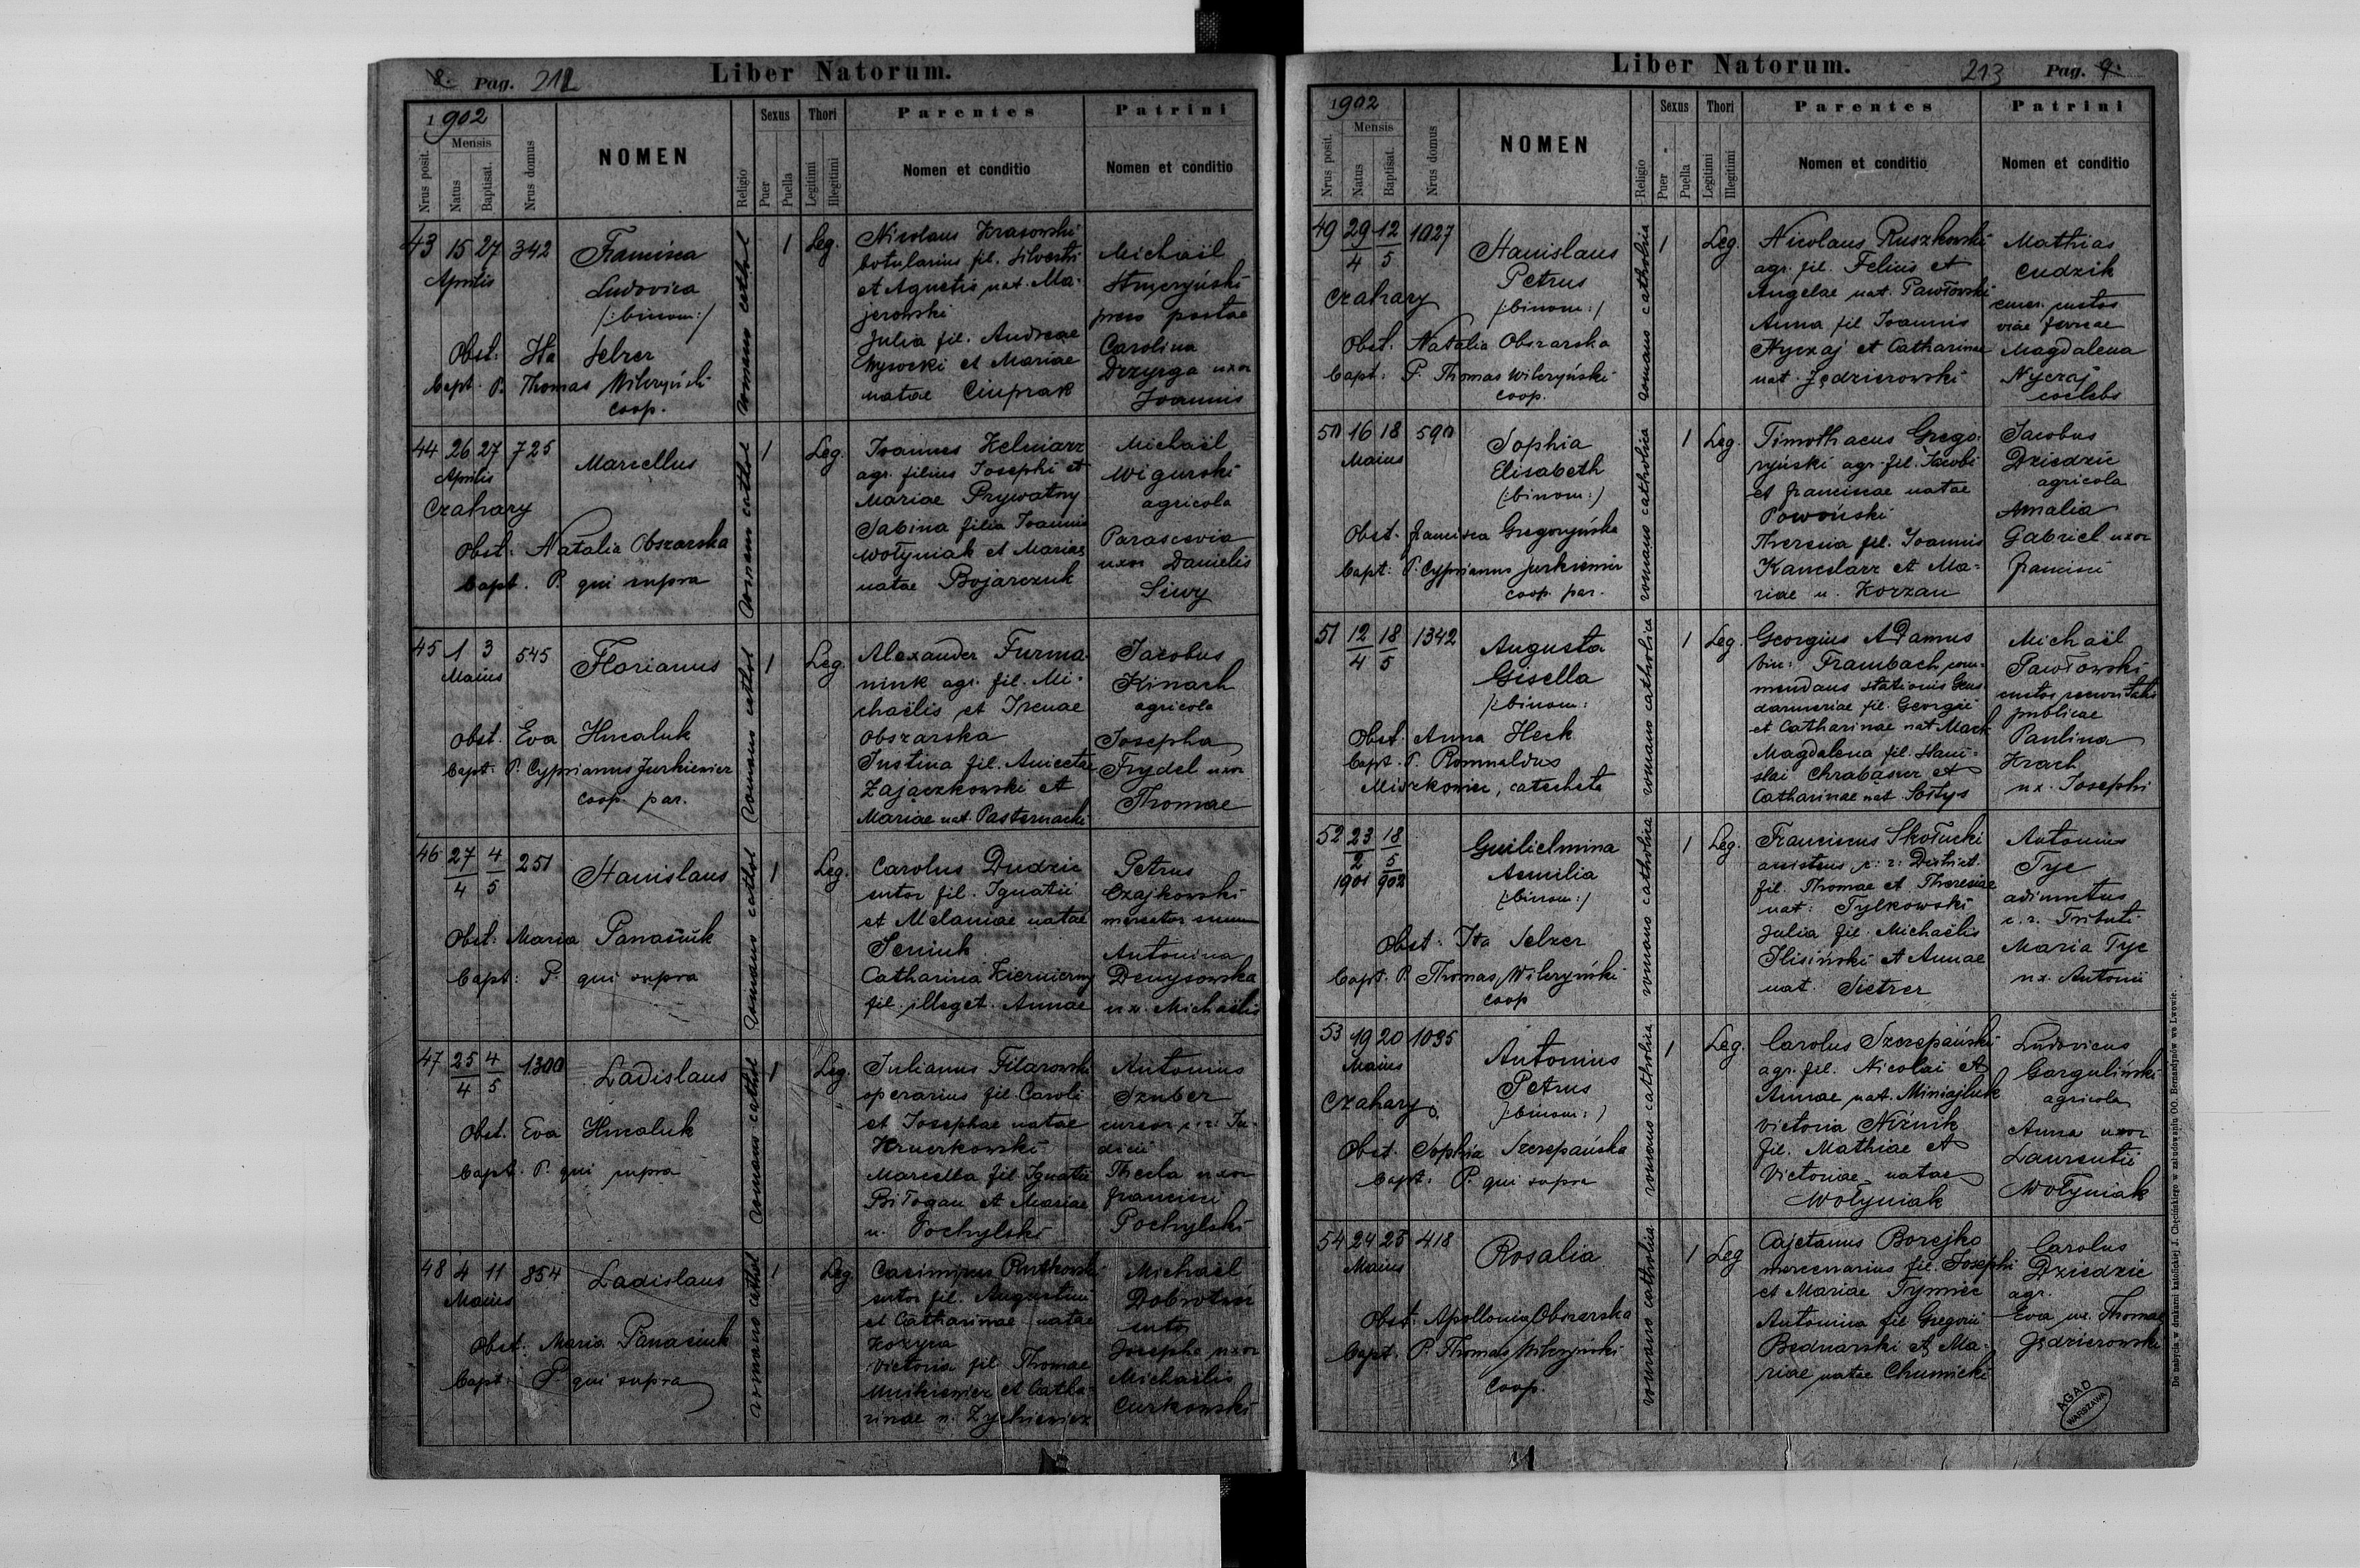 8. Pag. 212
Liber Natorum.
1902
Mensis
Nrus posit.
Natus
Baptisat.
Nrus domus
NOMEN
Religio
Sexus
Puer
Puella
Thori
Legitimi
Illegitimi
Parentes
Nomen et conditio
Patrini
Nomen et conditio
43 15 27 342
Aprilis
Francisca
Ludovica
/:binom:/
Obst. Ita Selzer
Bapt. P. Thomas Wilczyński
coop.
romano cathol
1
Leg.
Nicolaus Krasowski
botularius fil. Silvestri
et Agnetis nat. Ma-
jerowski
Julia fil. Andreae
Wysocki et Mariae
natae Ciuprak
Michaël
postae
Carolina
Drzyzga uxor
Joannis
44 26 27 725
Aprilis
Czahary
Marcellus
Obst. Natalia Obszarska
Bapt. P. qui supra
romano cathol
1
Leg.
Joannes Kelniarz
agr. filius Josephi et
Mariae Prywatny
Sabina filia Joannis
Wołyniak et Mariae
natae Bojarczuk
Michaël
Wigurski
agricola
Parascevia
uxor Danielis
Siwy
45 1 3 545
Maius
Florianus
Obst. Eva Hucaluk
Bapt. P. Cyprianus Jurkiewicz
coop. par.
romano cathol
1
Leg.
Alexander Furma-
niuk agr. fil. Mi-
chaëlis et Irenae
Obszarska
Justina fil. Anicetae
Zajączkowski et
Mariae nat. Pasternacki
Jacobus
Kinach
agricola
Josepha
Frydel uxor
Thomae
46 27/4 4/5 251
Stanislaus
Obst. Maria Panasiuk
Bapt: P. qui supra
romano cathol
1
Leg.
Carolus Dudzic
sutor fil. Ignatii
et Melaniae natae
Seniuk
Catharina Kiernierny
fil. illeget. Annae
Petrus
Czajkowski
Antonina
Denysowska
ux. Michaëlis
47 25/4 4/5 1300
Ladislaus
Obst. Eva Hucaluk
Bapt. P. qui supra
romano cathol
1
Leg.
Julianus Filarowski
operarius fil. Caroli
et Josephae natae
Kruczkowski
Marcella fil. Ignatii
Biłogan et Mariae
n. Pochylski
Antonius
Szuber
cursor c. r. Ju-
dicii
Thecla uxor
Francisci
Pochylski
48 4 11 854
Maius
Ladislaus
Obst. Maria Panasiuk
Bapt. P. qui supra
romano cathol
1
Leg.
Casimirus Rutkowski
sutor fil. Augustini
et Catharinae natae
Kozyra
Victoria fil Thomae
Munikiewicz et Catha-
rinae n. Zychiewicz
Michaël
sutor
Josepha uxor
Michaëlis
Curkowski
Liber Natorum.
213 Pag. 9.
1902
Mensis
Nrus posit.
Natus
Baptisat.
Nrus domus
NOMEN
Religio
Sexus
Puer
Puella
Thori
Legitimi
Illegitimi
Parentes
Nomen et conditio
Patrini
Nomen et conditio
49 29/4 12/5 1027
Czahary
Stanislaus
Petrus
/:binom:/
Obst. Natalia Obszarska
Bapt: P. Thomas Wilczyński
coop.
romano catholica
1
Leg.
Nicolaus Ruszkowski
agr. fil. Felicis et
Angelae nat. Pawłowski
Anna fil Joannis
Nyczaj et Catharinae
nat. Jędzierowski
Mathias
Cudzik
emer. custos
viae ferreae
Magdalena
Nyczaj
coelebs
50 16 18 590
Maius
Sophia
Elisabeth
(:binom:)
Obst. Francisca Gregoryńska
Bapt: P. Cyprianus Jurkiewicz
coop. par.
romano catholica
1
Leg.
Timothaeus Grego-
ryński agr. fil. Jacobi
et Franciscae natae
Powoński
Theresia fil. Joannis
Kancelarz et Ma-
riae n. Korzan
Jacobus
Dziedzic
agricola
Amalia
Gabriel uxor
Francisci
51 12/4 18/5 1342
Augusta
Gisella
/:binom:
Obst. Anna Heck
Bapt. P. Romualdus
Miszkowicz, catecheta
romano catholica
1
Leg.
Georgius Adamus
bin: Frambach com-
mendans stationis Gens-
darmeriae fil. Georgii
et Catharinae nat. Mach
Magdalena fil. Stani-
slai Chrabąszcz et
Catharinae nat. Sołtys
Michaël
Pawłowski
custos securitatis
publicae
Paulina
Krach
ux. Josephi
52 23/2 18/5
1901 902
Guilielmina
Aemilia
(:binom:)
Obst. Ita Selzer
Bapt. P. Thomas Wilczyński
coop
romano catholica
1
Leg.
Franciscus Skołucki
assistens c. r. District.
fil. Thomae et Theresiae
nat: Tylkowski
Julia fil. Michaëlis
Ilisiński et Annae
nat. Sietzer
Antonius
Tyc
adiunctus
c. r. Tributi
Maria Tyc
ux. Antonii
53 19 20 1095
Maius
Czahary
Antonius
Petrus
(:binom:)
Obst. Sophia Szczepańska
Bapt: P. qui supra
romano catholica
1
Leg.
Carolus Szczepański
agr. fil. Nicolai et
Annae nat. Miniajluk
Victoria Niżnik
fil. Mathiae et
Victoriae natae
Wołyniak
Ludovicus
Garguliński
agricola
Anna uxor
Laurentii
Wołyniak
54 24 25 418
Maius
Rosalia
Obst. Apollonia Obszarska
Bapt. P. Thomas Wilczyński
coop.
romano catholica
1
Leg
Cajetanus Borejko
mercenarius fil. Josephi
et Mariae Tymiec
Antonina fil Gregorii
Bednarski et Ma-
riae natae Chumicki
Carolus
Dziedzic
agr.
Eva ux. Thomae
Jędzierowski
AGAD
WARSZAWA
Do nabycia w drukarni katolickiej J. Chęcińskiego w zabudowaniu OO. Bernardynów we Lwowie.